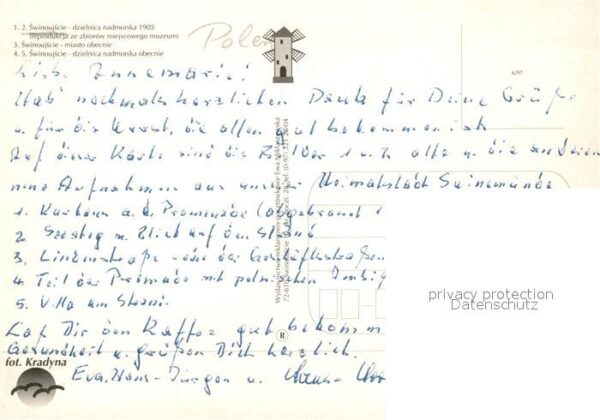 1. 2. Świnoujście - dzielnica nadmorska 1905
(reprodukcja ze zbiorów miejscowego muzeum)
3. Świnoujście - miasto obecnie
4. 5. Świnoujście - dzielnica nadmorska obecnie
Polen
6/97
Liebe Annemarie!
Hab nochmals herzlichen Dank für Deine Grüße
u. für die Wurst, die allen gut bekommen ist
Auf dieser Karte sind die Bilder 1 u. 2 alte u. die anderen
neue Aufnahmen aus unserer Heimatstadt Swinemünde
1. Kurhaus a. d. Promenade (abgebrannt
2. Seesteg m. Blick auf den Strand
3. Lindenstraße - eine der Geschäftsstraßen
4. Teil der Promenade mit polnischen Imbiß
5. Villa am Strand.
Laß Dir den Kaffee gut bekomm
Gesundheit u. grüßen Dich herzlich.
Eva, Hans-Jürgen u.
fot. Kradyna
R
privacy protection
Datenschutz